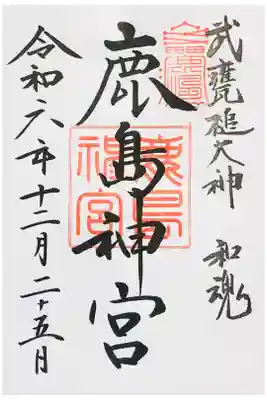 武甕槌大神 和魂
鹿島神宮
鹿島
神宮
令和六年十二月二十五日